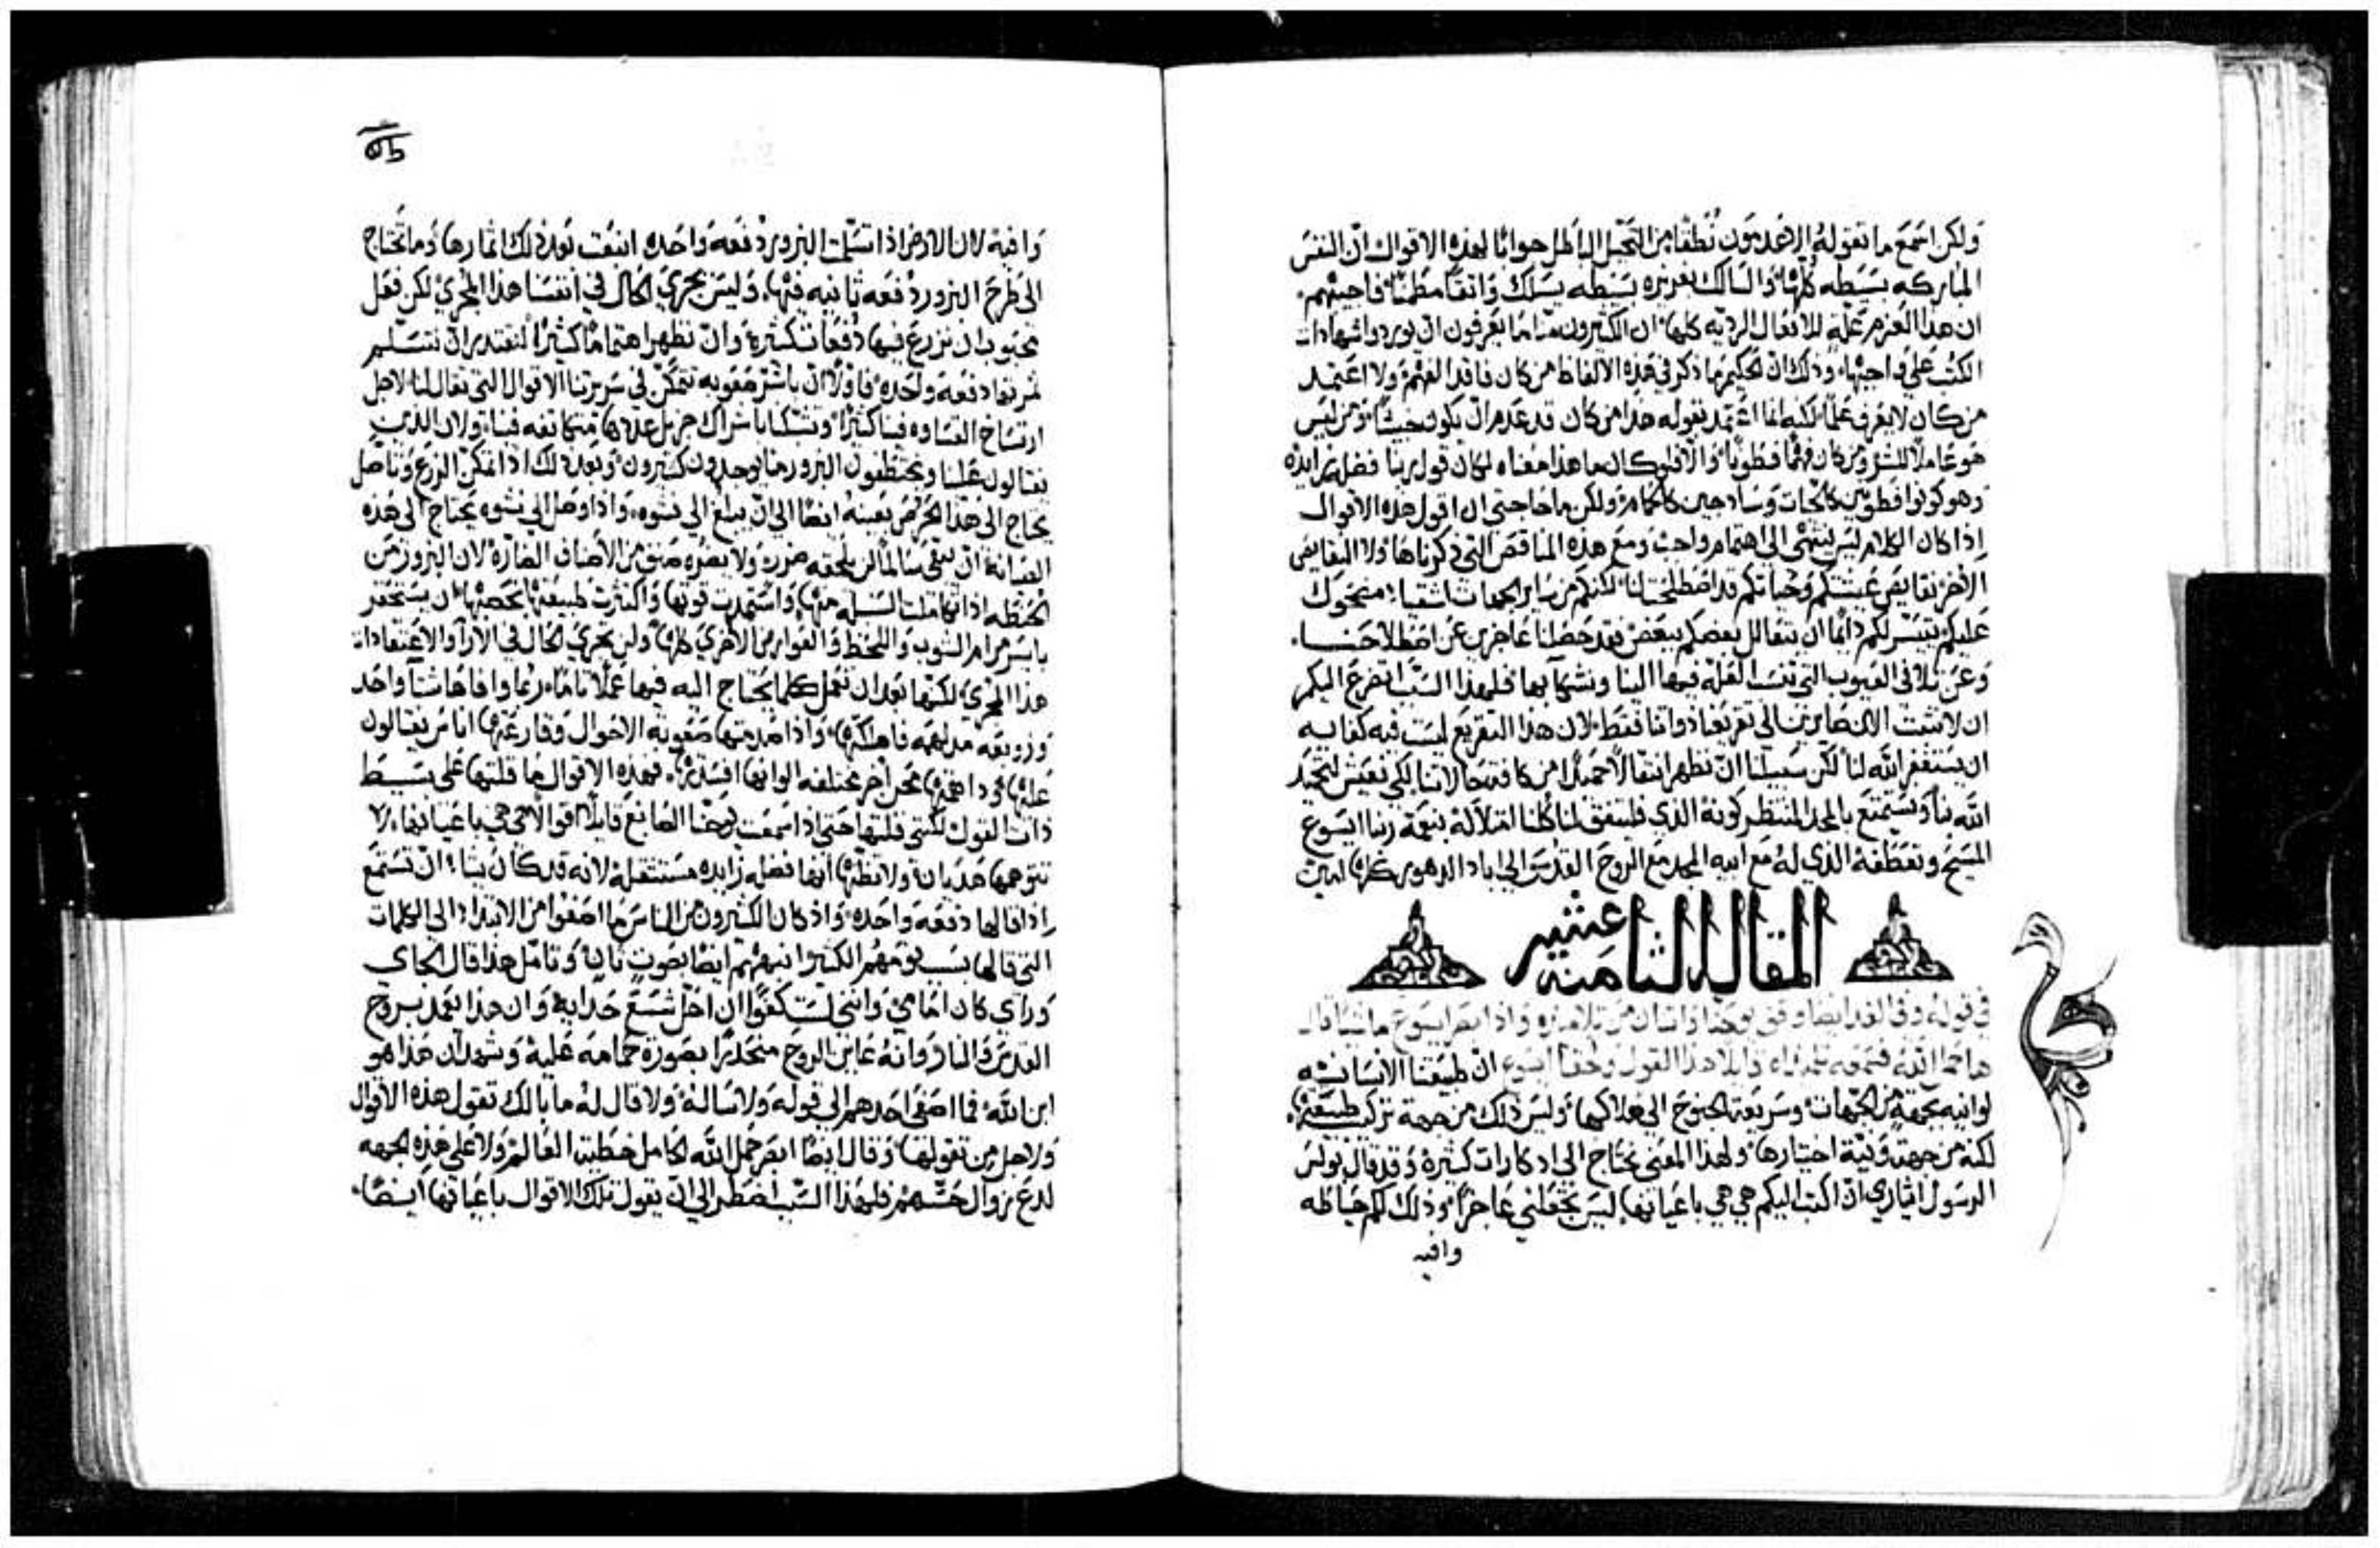 ولكن اسمع ما تقوله الاعدمون نطقا من التحيل الباطل جوابا لهذه الاقوال ان النفس
المباركه بسيطه كلها والسالك بغريزه بسيطه يسلك واثقا مطمئنا فاجيبهم
ان هذا العزم علة للافعال الرديه كلها ان الكثيرون ما يعرفون ان يوردوا شهادات
الكتب على واجبها وذلك ان الحكيم ما ذكر في هذه الالفاظ من كان فاقد الفهم ولا اعتمد
من كان لا يعرف علما لكنه انما اعتمد بقوله هذا من كان قد عدم ان يكون خبيثا ومن ليس
هو عاملا للشر ومن كان فهما فطونا والا فلو كان ما هذا معناه لكان قول ربنا فضله زايده
وهو كونوا فطونين كالحيات وساذجين كالحمام ولكن ما حاجتي ان اقول هذه الاقوال
اذا كان الكلام ليس ينتهي الى اهتمام واجب ومع هذه المناقص التي ذكرناها ولا النقايص
الاخر نقايص عيشتكم وحياتكم قد اصطلحت لنا لكنكم من ساير الجهات اشقياء مضحوك
عليكم يتيسر لكم دايما ان يتقال بعضكم ببعض فقد حصلنا عاجزين عن اصطلاحنا
وعن تلافي العيوب التي تنسب العله فيها الينا ونشكا بها فلهذا السبب اتضرع اليكم
ان لا نثبت الان صايرين الى تقريعنا ذواتنا فقط لان هذا التقريع ليست فيه كفايه
ان يستغفر الله لنا لكن سبيلنا ان نظهر انتقالا جميلا من كافة حالاتنا لكي نعيش لتمجيد
الله بنا ونستمتع بالمجد المنتظر كونه الذي فليتفق لنا كلنا امتلاكه بنعمة ربنا ايسوع
المسيح وتعطفه الذي له مع ابيه المجد مع الروح القدس الى اباد الدهور كلها امين
المقاله الثامنه عشر
في قوله وفي الغد ايضا وقف يوحنا واثنان من تلاميذه واذ ابصر ايسوع ماشيا قال
ها حمل الله فسمعه تلميذاه قايلا هذا القول ولحقا ايسوع ان طبيعتنا الانسانيه
لوانيه بجهة من الجهات وسريعة الجنوح الى هلاكها وليس ذلك من جهة تركيب طبيعتها
لكنه من جهة ونية اختيارها ولهذا المعنى تحتاج الى اذكارات كثيرة وقد قال بولس
الرسول ايثاري ان اكتب اليكم هي هي باعيانها ليس يجعلني عاجزا وذلك لكم حياطه
وافيه
وافية لان الارض اذا تسلمت البزور دفعه واحده انبعت بعد ذلك اثمارها وما تحتاج
الى طرح البزور دفعه ثانيه فيها وليس يجري الحال في انفسنا هذا المجرى لكن فعل
محبوب ان نزرع فيها دفعات كثيرة وان نظهر اهتماما كثيرا لنقتدر ان نتسلم
ثمرتها دفعة واحدة فاولا ان باشر صعوبه تتمكن في سريرتنا الاقوال التي تقال لنا لاجل
ارتساخ القساوه فينا كثيرا وتشبكا باشراك جزيل عددها متكاثفه فينا ولان الذين
يغتالون علينا ويختطفون البزور منا يوجدون كثيرون وبعد ذلك اذا تمكن الزرع وتاصل
يحتاج الى هذا الحرص بعينه ايضا الى ان يبلغ الى نشوه واذا وصل الى نشوه يحتاج الى هذه
العنايه ان تبقى سالما لن يلحقه ضرر ولا يضره صنف من الاصناف الضارة لان البزور من
الحنطه اذا تكاملت السنبله منها واستمدت قوتها
هذا المجرى لكنها بعد ان نعمل كلما يحتاج اليه فيها عملا تاما ربما وافاها شتاء واحد
وزوبعه مدلهمه فاهلكتها واذا صدمتها صعوبة الاحوال وقارعتها اناس يغتالون
عليها وداهمتها محن اخر مختلفه الوانها افسدتها فهذه الاقوال ما قلتها على بسيط
ذات القول لكنني قلتها حتى اذا سمعت يوحنا الصابغ قايلا اقوالا هي هي باعيانها لا
تتوهمها هذيانا ولا تظنها انها فضله زايده مستثقله لانه قد كان يشاء ان تستمع
اذا قالها دفعه واحده واذ كان الكثيرون من الناس ما اصغوا من الابتداء الى الكلمات
التي قالها بسبب نومهم الكثير انبههم ايضا بصوت ثان وتامل هذا قال الجاي
وراي كان امامي وانني لست كفوا ان احل شسع حذايه وان هذا يعمد بروح
القدس والنار وانه عاين الروح منحدرا بصورة حمامه عليه وشهد ان هذا هو
ابن الله فما اصغى احدهم الى قوله ولا ساله ولا قال له ما بالك تقول هذه الاقوال
ولاجل من تقولها وقال ايضا ابصر حمل الله الحامل خطية العالم ولا على هذه الجهه
لدع زوال حسهم فلهذا السبب اضطر الى ان يقول تلك الاقوال باعيانها ايضا